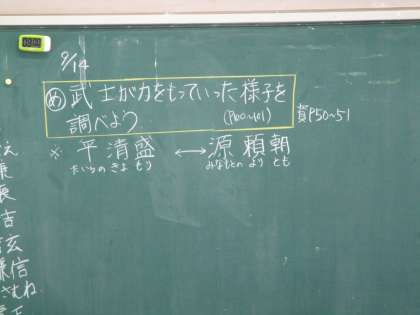 9/14
め 武士が力をもっていった様子を
調べよう
資P50~51
※ 平清盛 ←→ 源頼朝
たいらの きよ もり みなもとの より とも
吉
玄
信
さむね